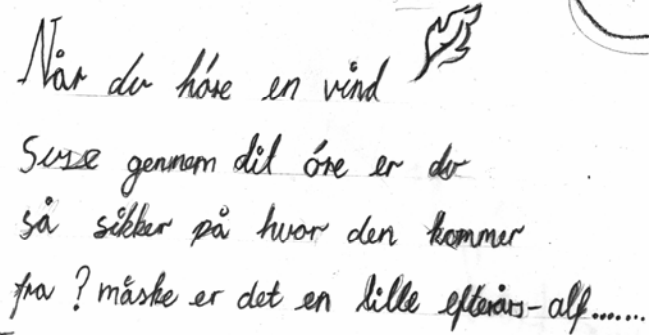 Når du høre en vind
Suse gennem dit øre er du
så sikker på hvor den kommer
fra? måske er det en lille efterårs-alf.......